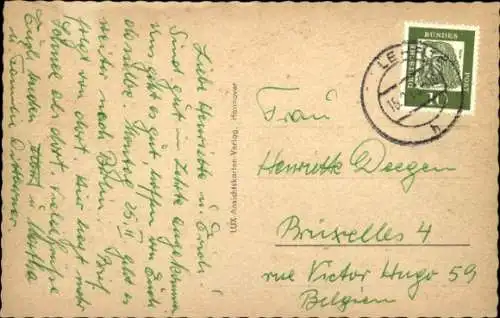 Liebe Henriette u. Erich!
Sind gut in Lehrte angekommen
uns geht es gut hoffen von Euch
dasselbe. Montag 25. II geht es
weiter nach Köln. Brief
folgt von dort. hier hast mehr
Schnee als dort. Viele Grüße
u. Martha
u. Familie
LUX-Ansichtskarten-Verlag, Hannover
DEUTSCHE
BUNDES
POST
10
LE
15.
h
Frau
Henriette Deegen
Brüxelles 4
rue Victor Hugo 59
Belgien